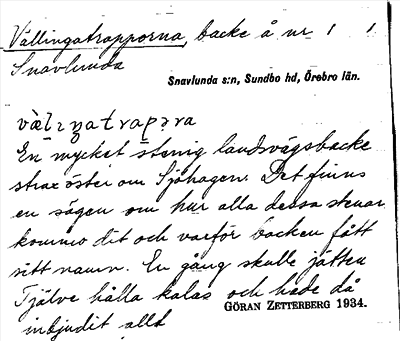 Vällingatrapporna, backe å nr 1 1
Snavlunda
Snavlunda s:n, Sundbo hd, Örebro län.
vàlıŋatrapəra
En mycket stenig landsvägsbacke
strax öster om Sjöhagen. Det finns
en sägen om hur alla dessa stenar
kommo dit och varför backen fått
sitt namn. En gång skulle jätten
Tjälve hålla kalas och hade då
inbjudit allt
GÖRAN ZETTERBERG 1934.